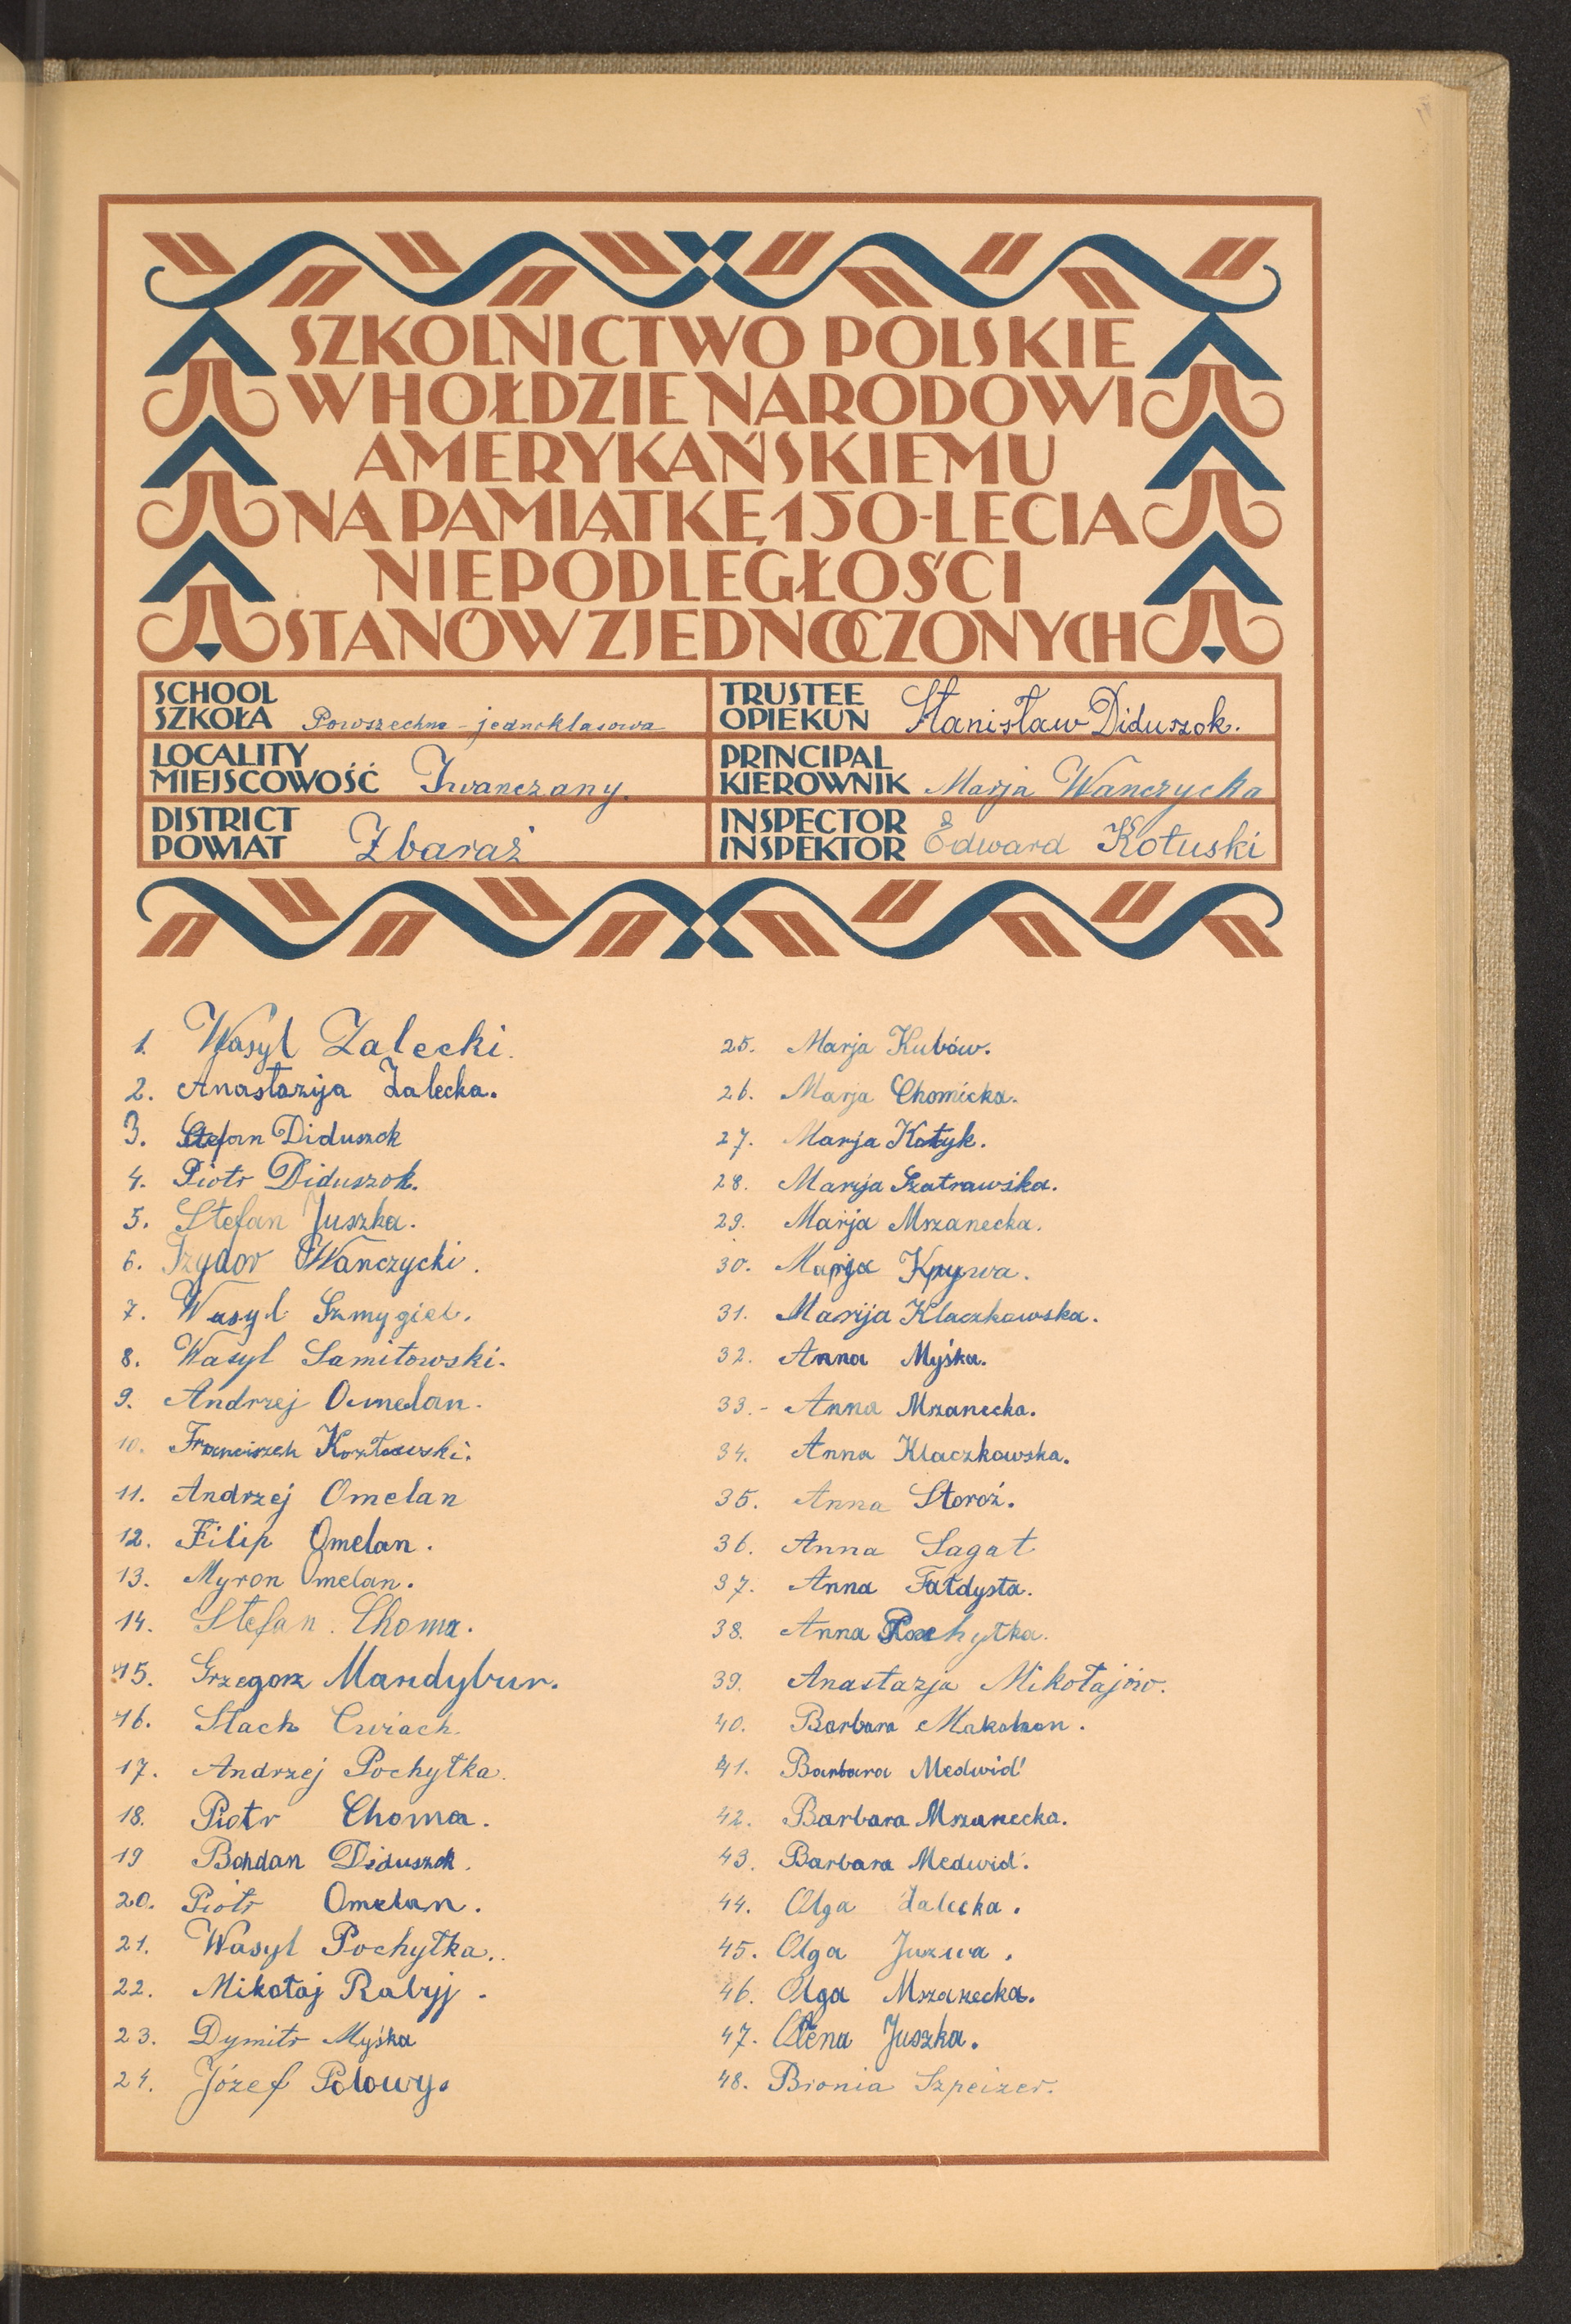 SZKOLNICTWO POLSKIE
W HOŁDZIE NARODOWI
AMERYKAŃSKIEMU
NA PAMIĄTKĘ 150-LECIA
NIEPODLEGŁOŚCI
STANÓW ZJEDNOCZONYCH
SCHOOL
SZKOŁA Powszechna - jednoklasowa
LOCALITY
MIEJSCOWOŚĆ Iwanczany.
DISTRICT
POWIAT Zbaraż
TRUSTEE
OPIEKUN Stanisław Diduszok.
PRINCIPAL
KIEROWNIK Marja Wanczycka
INSPECTOR
INSPEKTOR Edward Kotuski
1. Wasyl Zalecki.
2. Anastazija Zalecka.
3. Stefan Diduszok
4. Piotr Diduszok.
5. Stefan Juszka.
6. Izydor Wanczycki.
7. Wasyl Szmygiel.
8. Wasyl Samitowski.
9. Andrzej Omelan.
10. Franciszek Kozłowski.
11. Andrzej Omelan
12. Filip Omelan.
13. Myron Omelan.
14. Stefan Choma.
15. Grzegorz Mandybur.
16. Stach Cwiach.
17. Andrzej Pochytka.
18. Piotr Choma.
19 Bohdan Diduszok.
20. Piotr Omelan.
21. Wasyl Pochytka.
22. Mikołaj Rabyj.
23. Dymitr Myśka
24. Józef Polowy.
25. Marja Kubów.
26. Marja Chomicka.
27. Marja Kotyk.
28. Marija Szatrawśka.
29. Marja Mszanecka.
30. Marija
31. Marija Klaczkowska.
32. Anna Myśka.
33. - Anna Mszanecka.
34. Anna Klaczkowska.
35. Anna Storoż.
36. Anna Sagat
37. Anna Fałdysta.
38. Anna Pochytka.
39. Anastazja Mikołajów.
40. Barbara
41. Barbara Medwid'
42. Barbara Mszanecka.
43. Barbara Medwid'.
44. Olga Zalecka.
45. Olga Juzwa.
46. Olga Mszanecka.
47. Ołena Juszka.
48. Bronia Szpeizer.